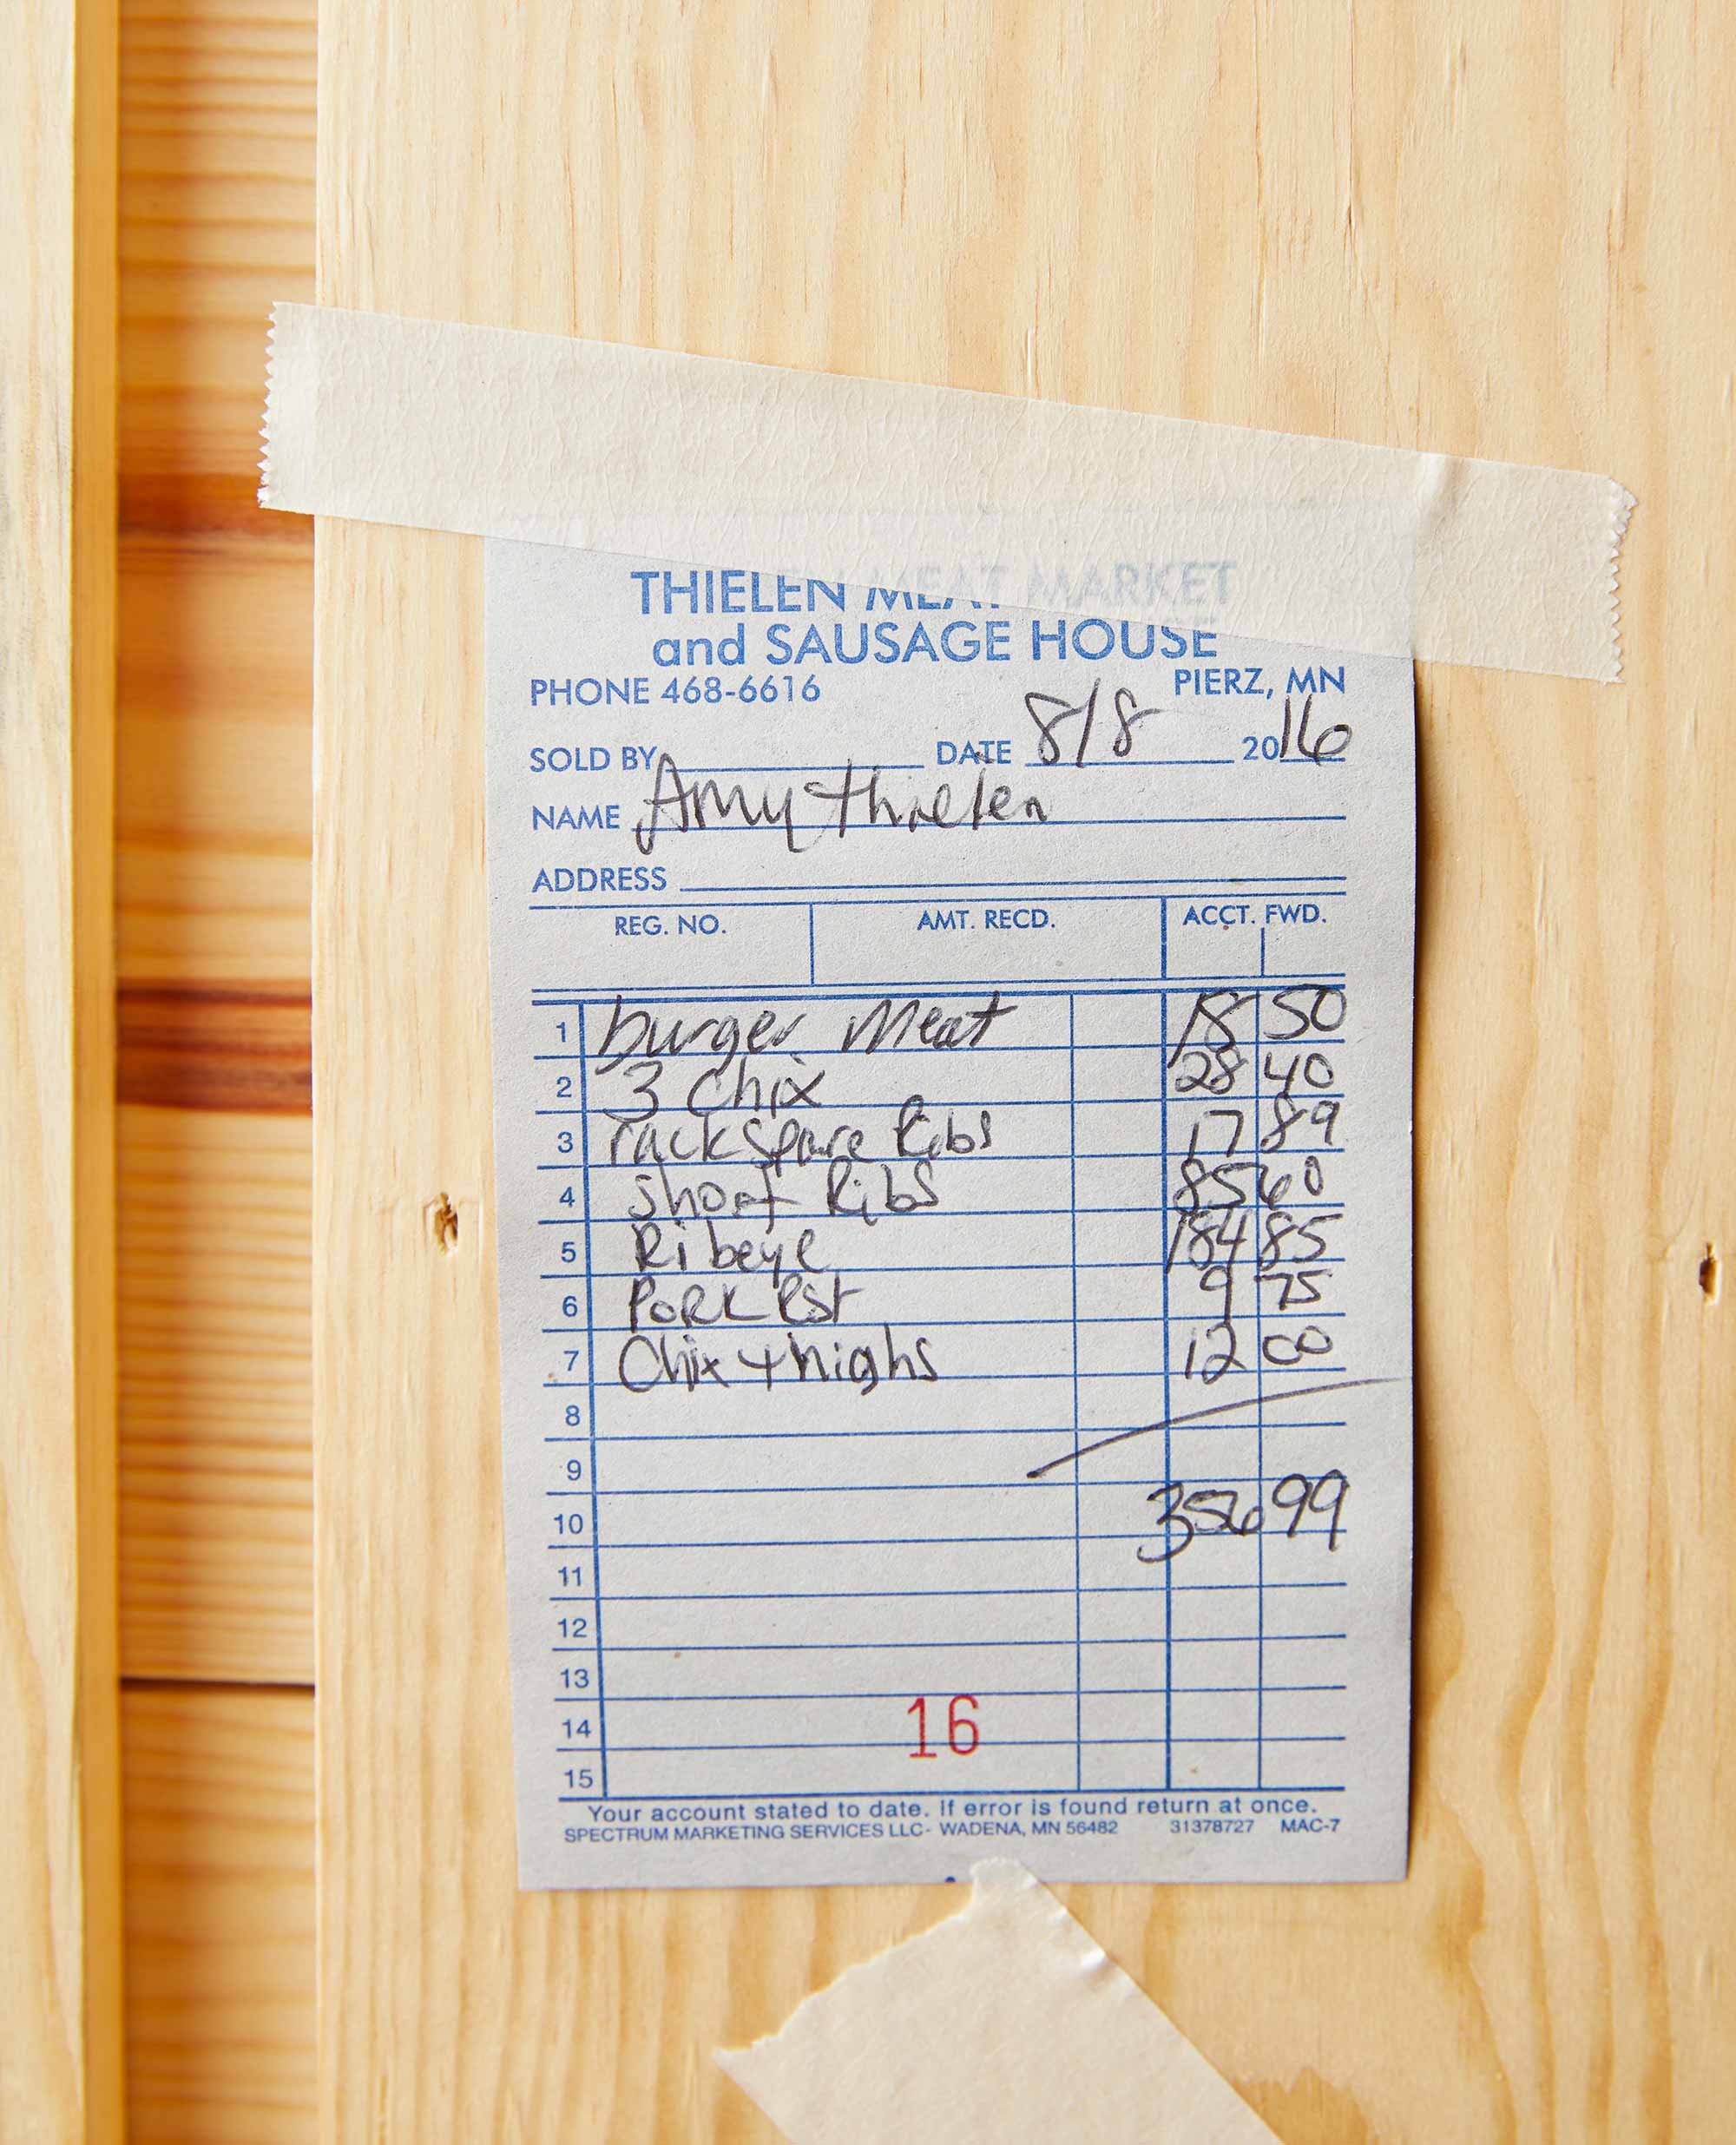 THIELEN MEAT MARKET
and SAUSAGE HOUSE
PHONE 468-6616 PIERZ, MN
SOLD BY DATE 8/8 2016
NAME Amy Thielen
ADDRESS
REG. NO. AMT. RECD. ACCT. FWD.
1 burger Meat 18 50
2 3 Chix 28 40
3 rack Spare Ribs 17 89
4 Short Ribs 85 60
5 Ribeye 184 85
6 PORK Rst 9 75
7 Chix thighs 12 00
8
9
10 356 99
11
12
13
14 16
15
Your account stated to date. If error is found return at once.
SPECTRUM MARKETING SERVICES LLC- WADENA, MN 56482 31378727 MAC-7